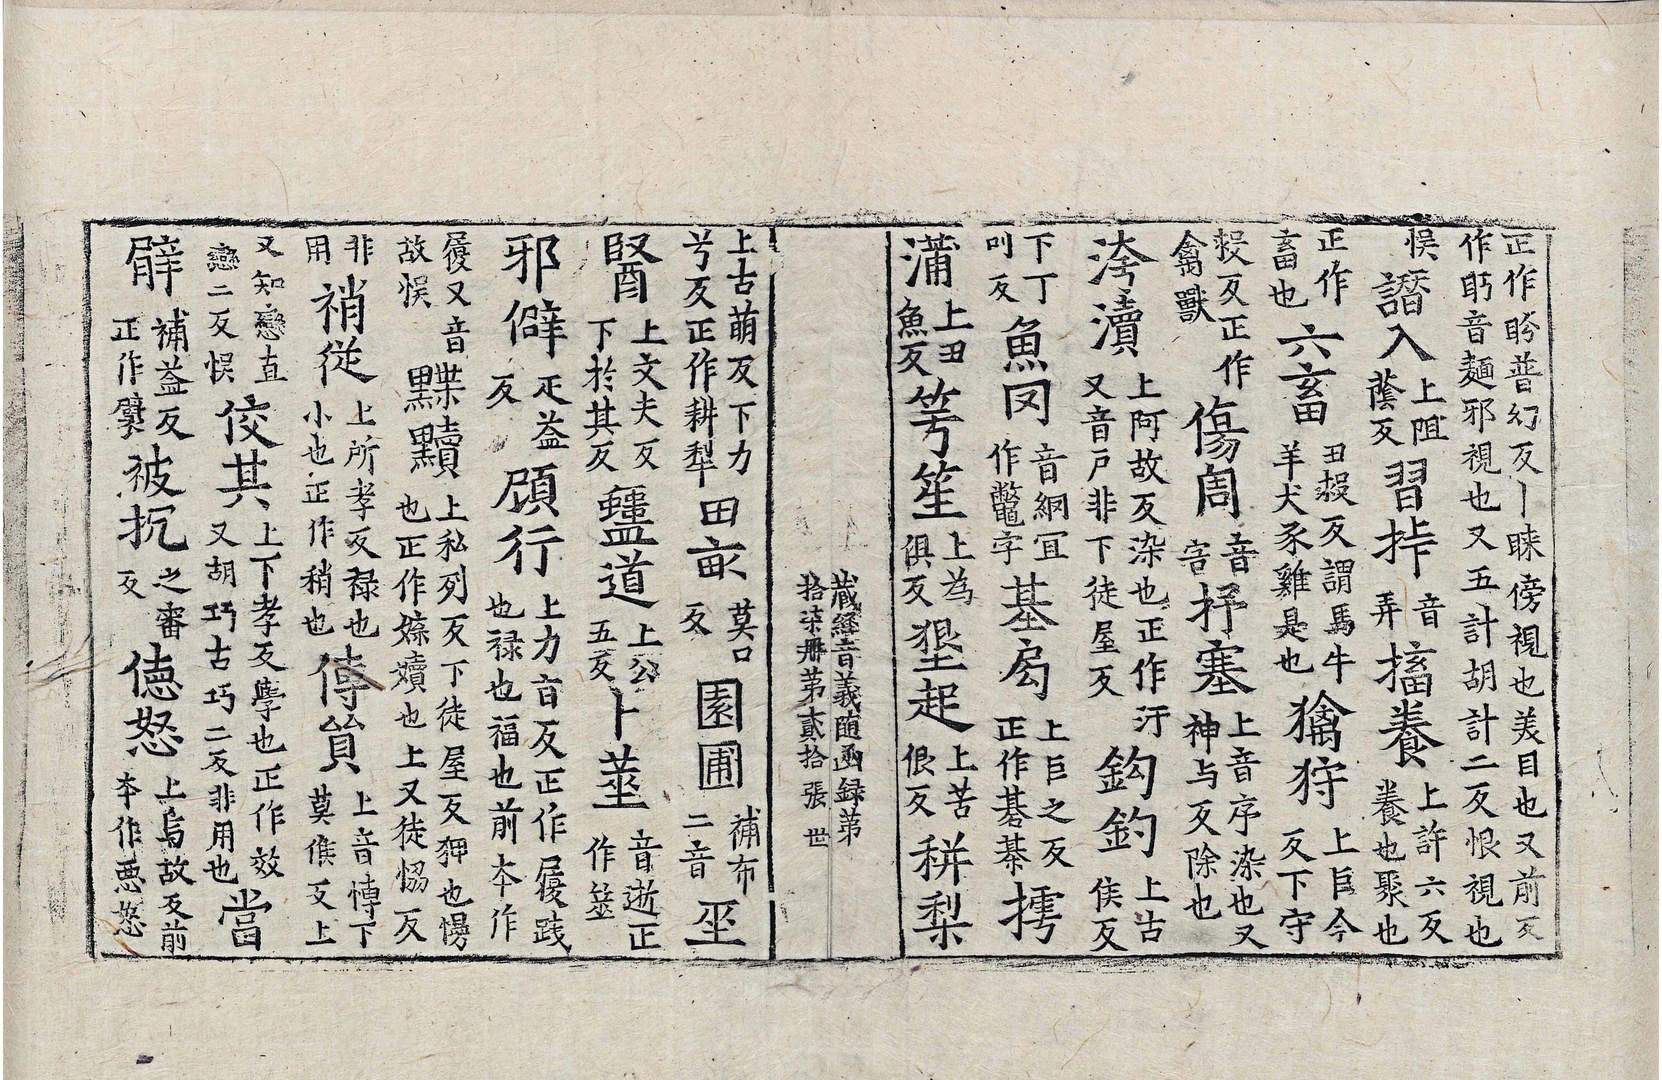 正作盻普幻反丨睞傍視也美目也又前反作眄音麺邪視也又五計胡計二反恨視也
悞譛入上阻蔭反習挊音弄搐養上許六反養也聚也
正作畜也六畜丑救反謂馬牛羊犬豕雞是也擒狩上巨今反下守
救反正作禽獸傷周音害抒塞上音序染也又神与反除也
洿瀆上阿故反染也正作汙又音戶非下徒屋反鈎釣上古侯反
下丁叫反魚罔音網冝作鼈字基局上巨之反正作碁棊摴
蒲上丑魚反竽笙上為俱反墾起上苦佷反耕梨
藏經音義随函録第
拾柒冊第貳拾張 世
上古萌反下力兮反正作耕犁田畝莫口反園圃補布二音巫
毉上文夫反下於其反蠱道上公五反卜䇲音逝正作筮
邪僻疋益反頋行上力盲反正作履踐也禄也福也前本作
履又音故悞㸁黷上私列反下徒屋反狎也慢也正作媟嬻也上又徒恊反
非用禂從上所孝反禄也小也正作稍也傳貿上音愽下莫候反上
又知戀直戀二反悞佼其上下孝反學也正作效又胡巧古巧二反非用也當
辟補益反正作擘被抌之審反憄怒上烏故反前本作惡怒